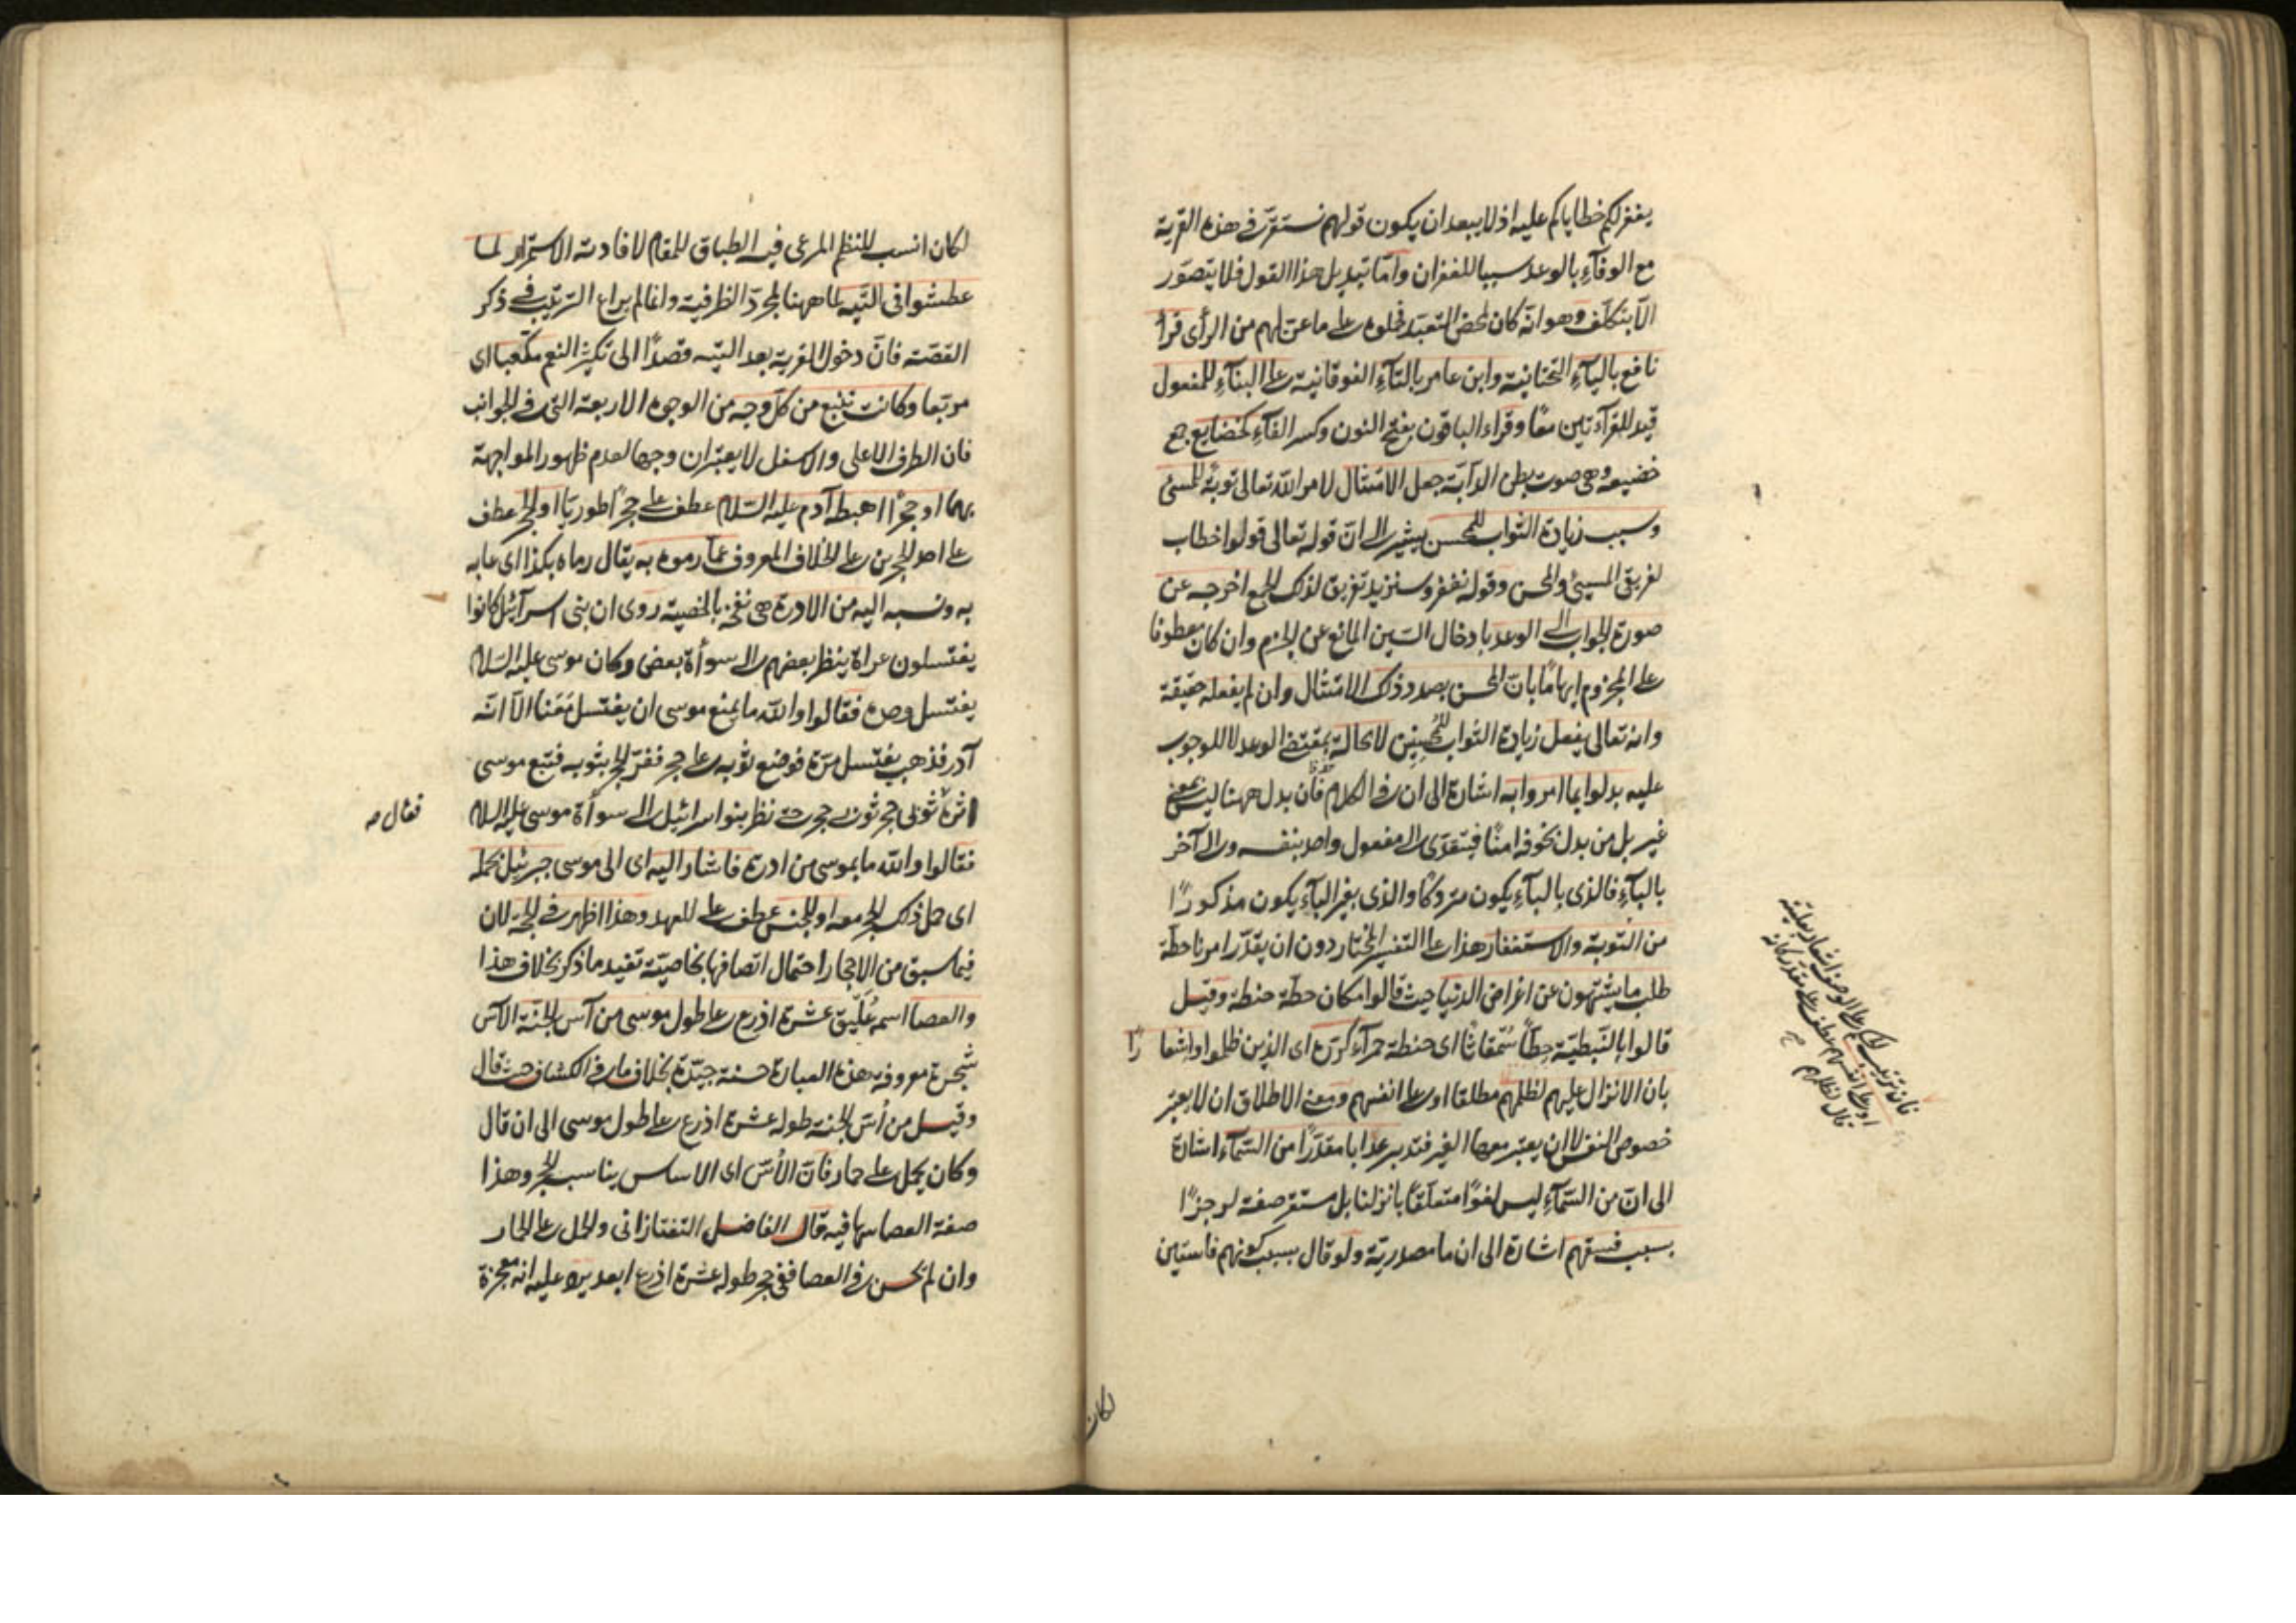 يغفر لكم خطاياكم عليه اذ لا يبعد ان يكون قولهم نستقر في هذه القرية
مع الوفآء بالوعد سببا للغفران وامّا تبديل هذا القول فلا يتصوّر
الّا بتكلّف وهو انّه كان لمحض التعبّد فخلوه على ما عنّ لهم من الرأى قرأ
نافع باليآء التحتانية وابن عامر بالتآء الفوقانية على البنآء للمفعول
قيد للقرآءتين معًا وقراء الباقون بفتح النون وكسر الفآء كخضايع جمع
خضيعه وهى صوت بطن الدآبّة جعل الامتثال لامر الله تعالى توبةً للمسئ
وسبب زيادة الثواب للمحسن يشير الى انّ قوله تعالى قولوا خطاب
لفريقى المسيئ والمحسن وقوله نغفر وسنزيد تفريق لذلك الجمع اخرجه عن
صورة الجواب الى الوعد با دخال السّين المانع عن الجزم وان كان معطوفا
على المجزوم ايهامًا بانّ المحسن بصدد ذلك الامتثال وان لم يفعله حقيقة
وانه تعالى يفعل زيادة الثواب للمحسنين لا محالة بمقتضى الوعد لا للوجوب
عليه بدلوا بما امروا به اشارة الى ان في الكلام حذفًا فان بدل ههنا ليس بمعنى
غير بل من بدل بخوفه امنًا فيتعدّى الى مفعول واحد بنفسه والى آخر
بالبآء فالذى بالبآء يكون متروكًا والذى بغير البآء يكون مذكورًا
من التوبة والاستغفار هذا على التفسير المختار دون ان يقدّر امرنا حطّة
طلب ما يشتهون عن اغراض الدنيا حيث قالوا مكان حطّة حنطة وقيل
قالوا بالنّبطيّة حِطاًّ سُمقاثا اى حنطة حمرآء كرّره اى الذين ظلموا واشعارًا
بان الانزال عليهم لظلمهم مطلقا او على انفسهم ومعنى الاطلاق ان لا يعتبر
خصوص النفس لا ان يعتبر معها الغير فتدبر عذابا مقدّرًا من السّمآء اشارة
الى انّ من السّمآء ليس لغوًا متعلّقا بانزلنا بل مستقر صفة لرجزًا
بسبب فسقهم اشارة الى ان ما مصدريّة ولو قال بسبب كونهم فاسقين
فان ترتيب الحكم على الوصف اشعار بعلية
او على انفسهم عطف على مقدر كانه
قال لظلمهم
لكان
لكان انسب للنظم المرعى فيه الطباق للمقام لافادته الاستمرار لما
عطشوا فى التّيه لما ههنا لمجرّد الظرفية وانما لم يراع الترتيب في ذكر
القصّة فانّ دخول القرية بعد التيه قصدًا الى تكثير النعم مكعّبا اى
مربّعا وكانت تنبع من كلّ وجه من الوجوه الاربعة التى في الجوانب
فان الطرف الاعلى والاسفل لا يعتبران وجها لعدم ظهور المواجهة
بهما او حجرًا اهبطه آدم عليه السّلام عطف على حجرًا طوريّا او الحجر عطف
على احد الحجرين على الخلاف المعروف عمّا رموه به يقال رماه بكذا اى عابه
به ونسبه اليه من الادرة هى نفخة بالخصية روى ان بنى اسرآئيل كانوا
يغتسلون عراة ينظر بعضهم الى سوأة بعض وكان موسى عليه السّلام
يغتسل وحده فقالوا والله ما يمنع موسى ان يغتسل معنا الّا انّه
آدر فذهب يغتسل مرّة فوضع ثوبه على حجر ففرّ الحجر بثوبه فتبع موسى
اثره ثوبى حجر ثوبى حجر حتى نظر بنوا اسرائيل الى سوأة موسى عليه السلام
فقالوا والله ما بموسى من ادرة فاشار اليه اى الى موسى جبرئيل بحمله
اى حمل ذلك الحجر معه او للجنس عطف على للعهد وهذا اظهر في الحجة لان
فيما سبق من الاحجار احتمال اتصافها بخاصيّة تفيد ما ذكر بخلاف هذا
والعصا اسمه عُلّيق عشرة اذرع على طول موسى من آس الجنّة الآس
شجرة معروفة وهذه العبارة حسنة جيّدة بخلاف ما في الكشاف حيث قال
وقيل من أسّ الجنة طوله عشرة اذرع على طول موسى الى ان قال
وكان يحمل على حمار فانّ الأسّ اى الاساس يناسب الحجر وهذا
صفة العصا سها فيه قال الفاضل التفتازانى والحمل على الحمار
وان لم يحسن في العصا ففى حجر طوله عشرة اذرع ابعد يرد عليه انه معجزة
فقال صه